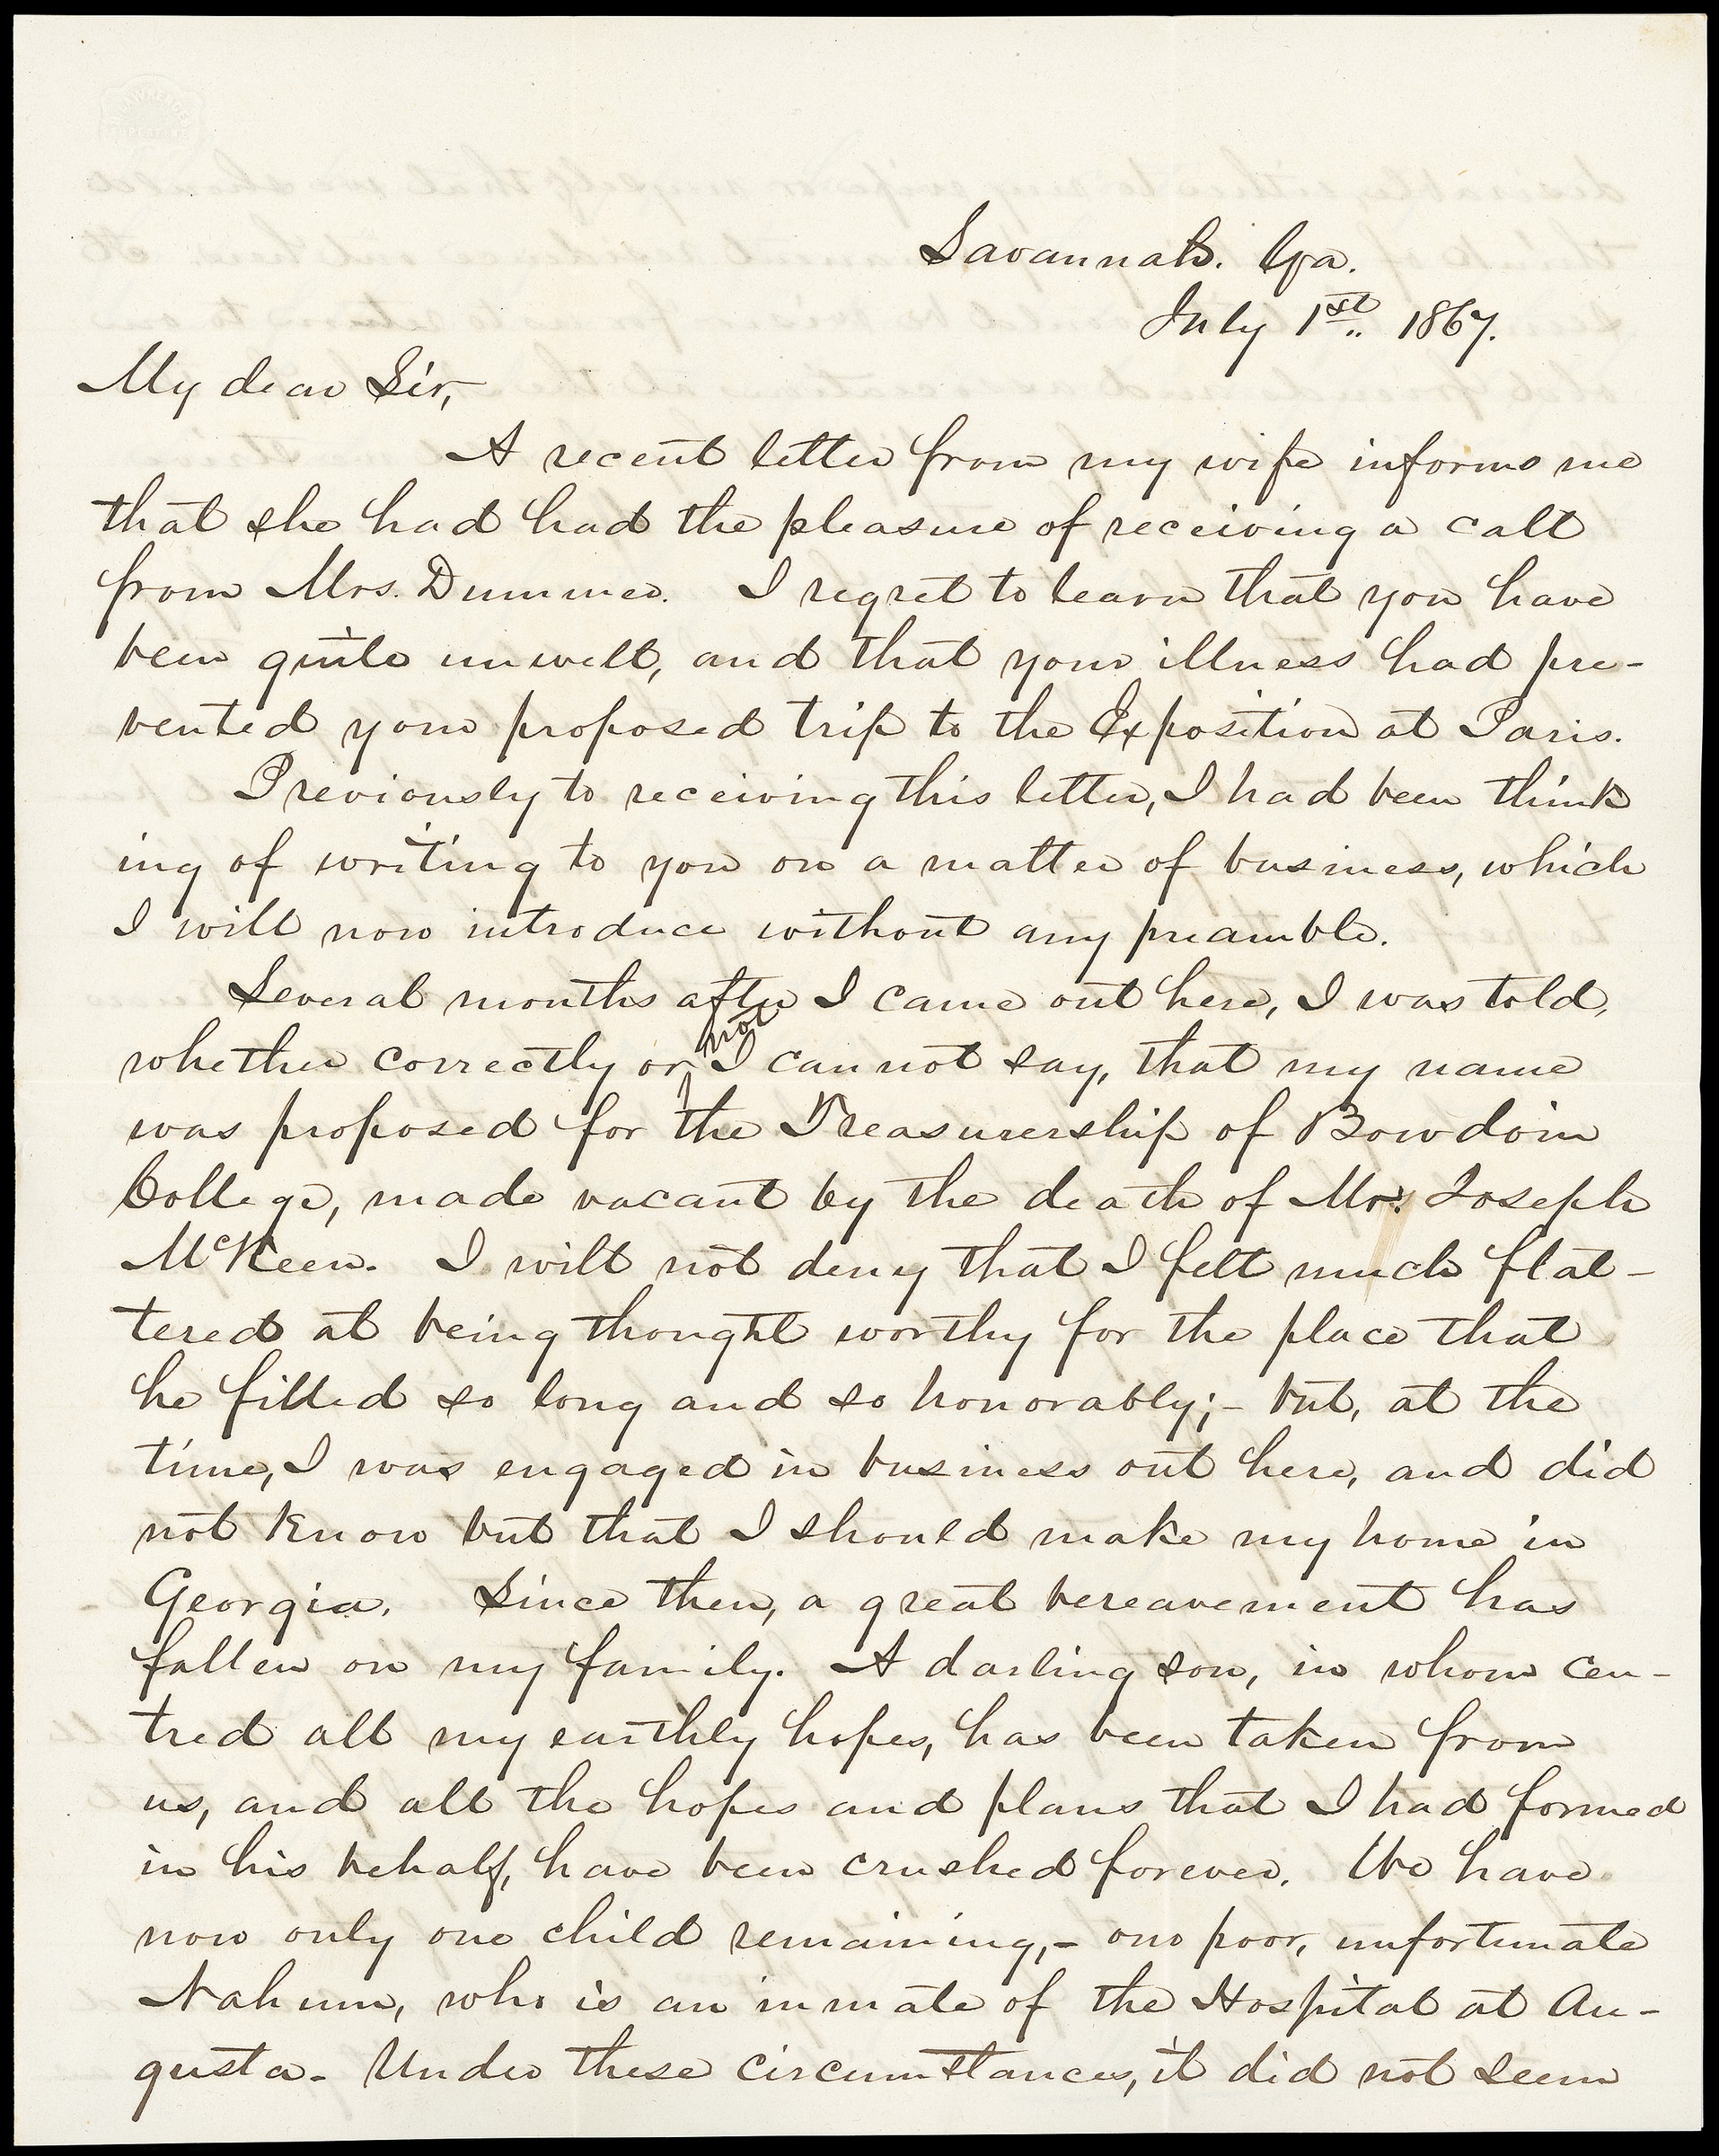 Savannah. Ga.
July 1st. 1867.
My dear Sir,
A recent letter from my wife informs me
that she had had the pleasure of receiving a call
from Mrs. Dummer. I regret to learn that you have
been quite unwell, and that your illness had pre-
vented your proposed trip to the Exposition at Paris.
Previously to receiving this letter, I had been think
ing of writing to you on a matter of business, which
I will now introduce without any preamble.
Several months after I came out here, I was told,
whether correctly or not I cannot say, that my name
was proposed for the Treasurership of Bowdoin
College, made vacant by the death of Mr. Joseph
McKeen. I will not deny that I felt much flat-
tered at being thought worthy for the place that
he filled so long and so honorably;- but, at the
time, I was engaged in business out here, and did
not know but that I should make my home in
Georgia. Since then, a great bereavement has
fallen on my family. A darling son, in whom cen-
tred all my earthly hopes, has been taken from
us, and all the hopes and plans that I had formed
in his behalf, have been crushed forever. We have
now only one child remaining,- our poor, unfortunate
Nahum, who is an inmate of the Hospital at Au-
gusta- Under these circumstances, it did not seem